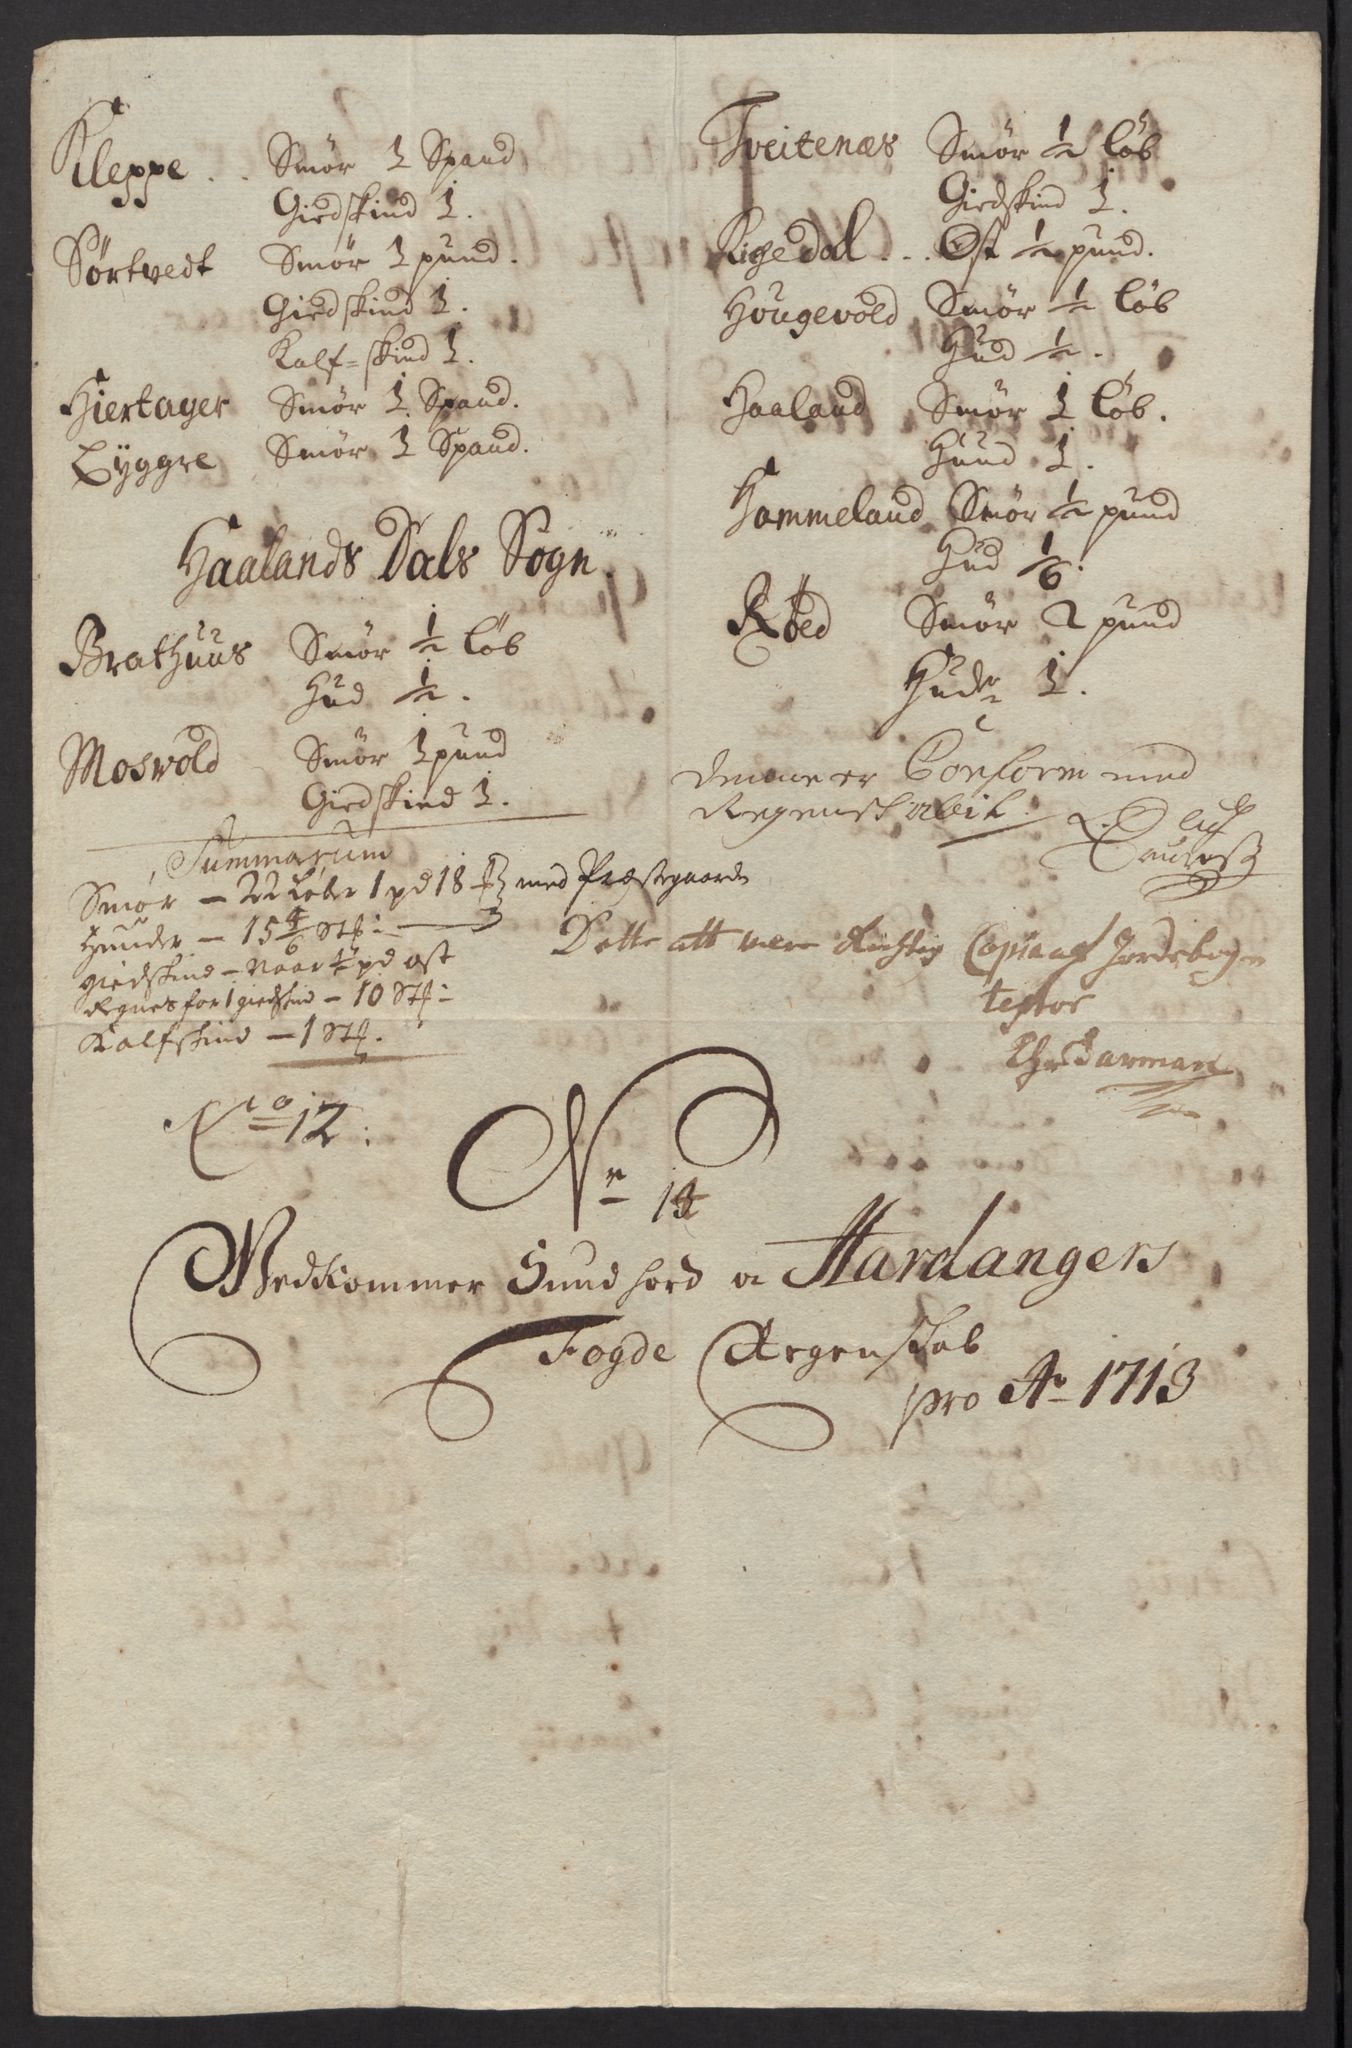 Kleppe . . Smör 1 Spand
Giedskind 1.
Sörtvedt Smör 1 pund.
Giedskind 1.
Kalf=skind 1.
Hiertager Smör 1 Spand.
Eÿggre Smör 1 Spand.
Haalands Dals Sogn.
Brathuus Smör 1/2 löb
Hud 1/2.
Moswold Smör 1 pund
Giedskind 1.
Summarum
Smör – 22 Löber 1 pd 18 ℔ med Præstegaarde
Huuder – 15 4/6 Stk:
giedskind – Naar 1/2 pd ost
Regnes for 1 giedskind – 10 Stk:
Kalfskind – 1 Stk.
Tveitenæs Smör 1/2 löb
Giedskind 1.
Rigedal . . . Ost 1/2 pund.
Hougevold Smör 1/2 löb
Hud 1/2.
Haaland Smör 1 löb.
Huud 1.
Hammeland Smör 1/2 pund
Hud 1/6.
Röed Smör 2 pund
Huder 1.
denne er Conform med
Regenskabit
Dette att være Rigtig Copia af Jordebogen
testor
No 12:
Nr 13
Vedkommer Sundhord oc Hardangers
Fogde Regenskab
pro Ao 1713